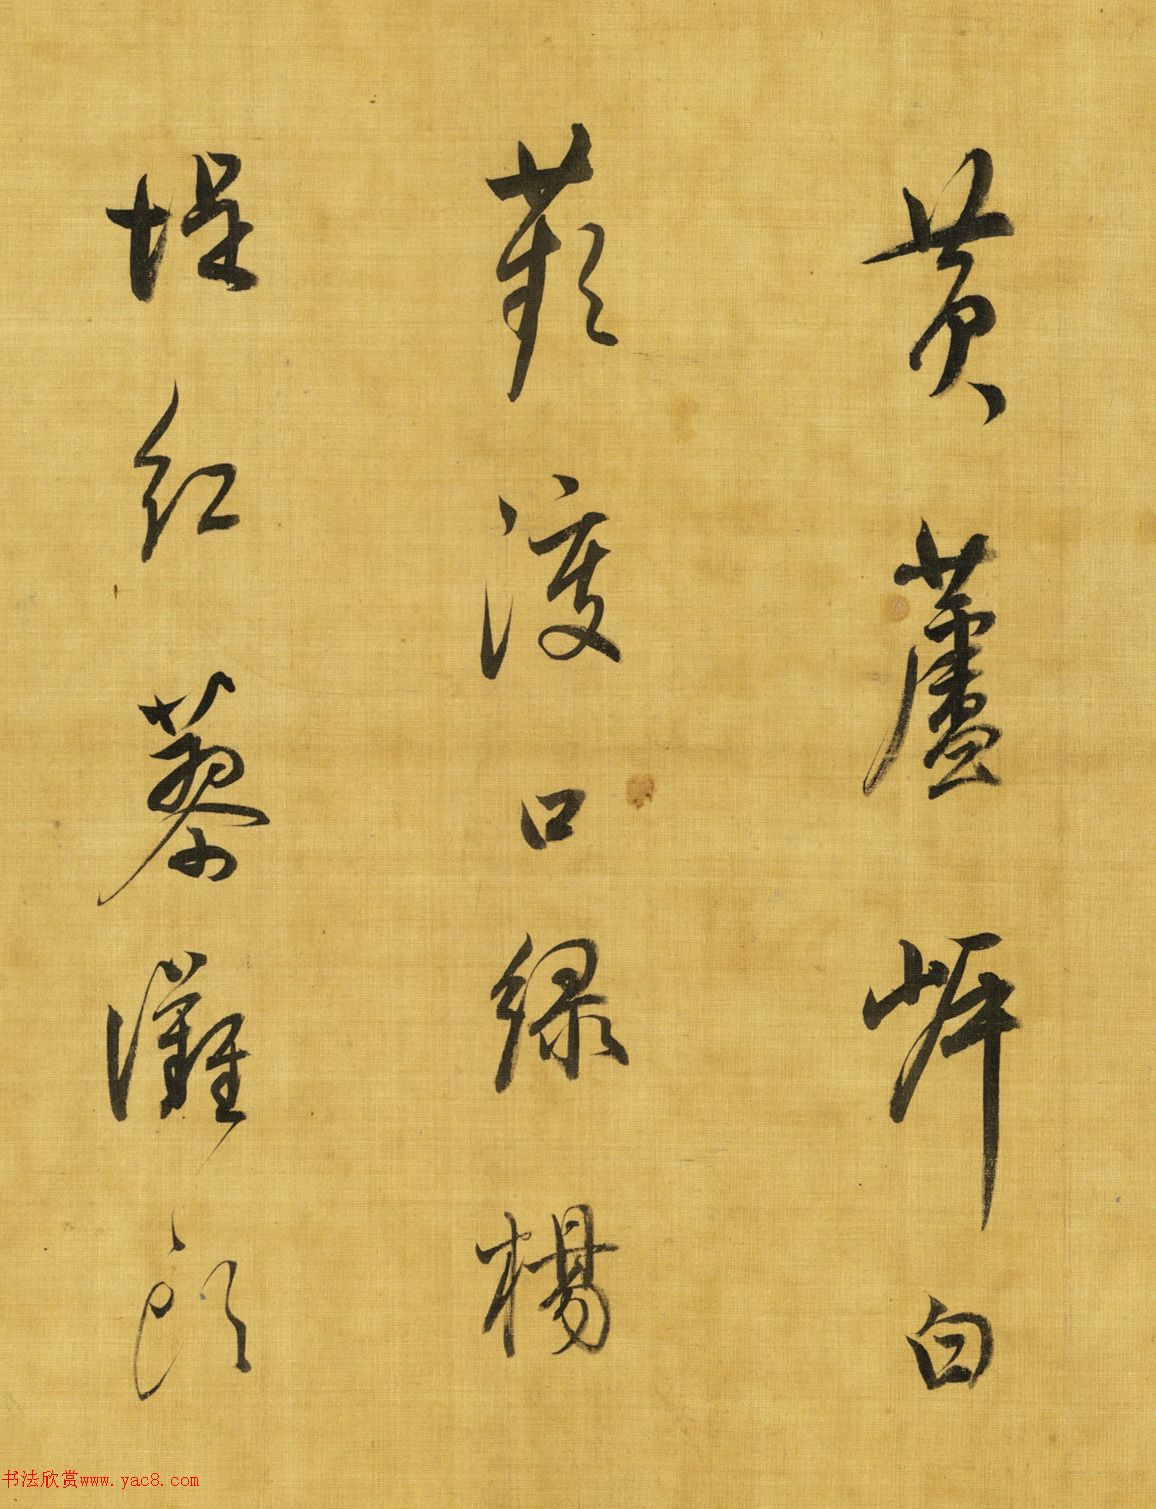 黄蘆岸白
蘋渡口緑楊
堤紅蓼灘頭
书法欣赏www.yac8.com